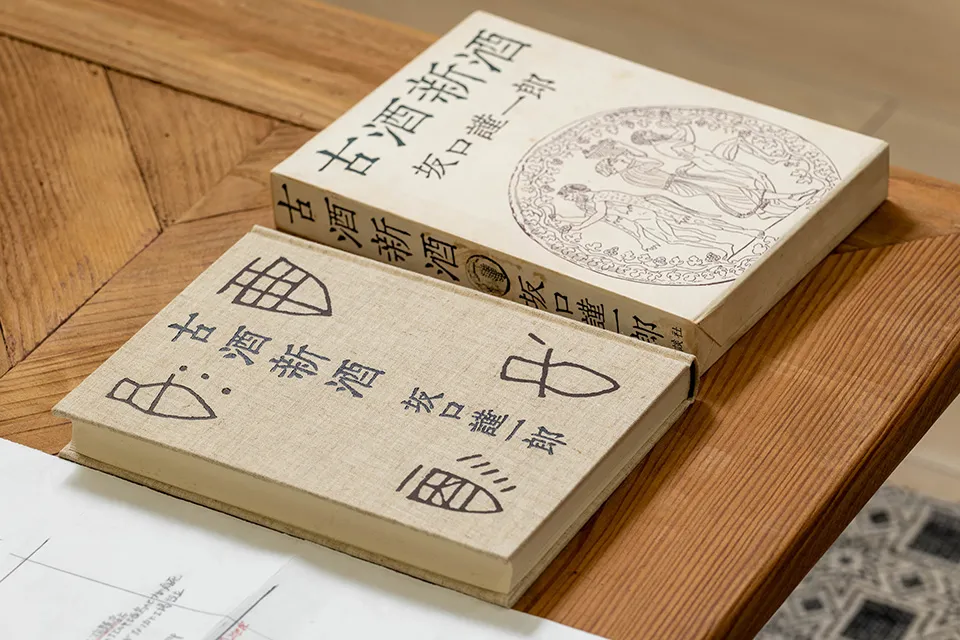 古酒新酒
坂口謹一郎
古酒新酒
坂口謹一郎
古酒新酒
坂口謹一郎